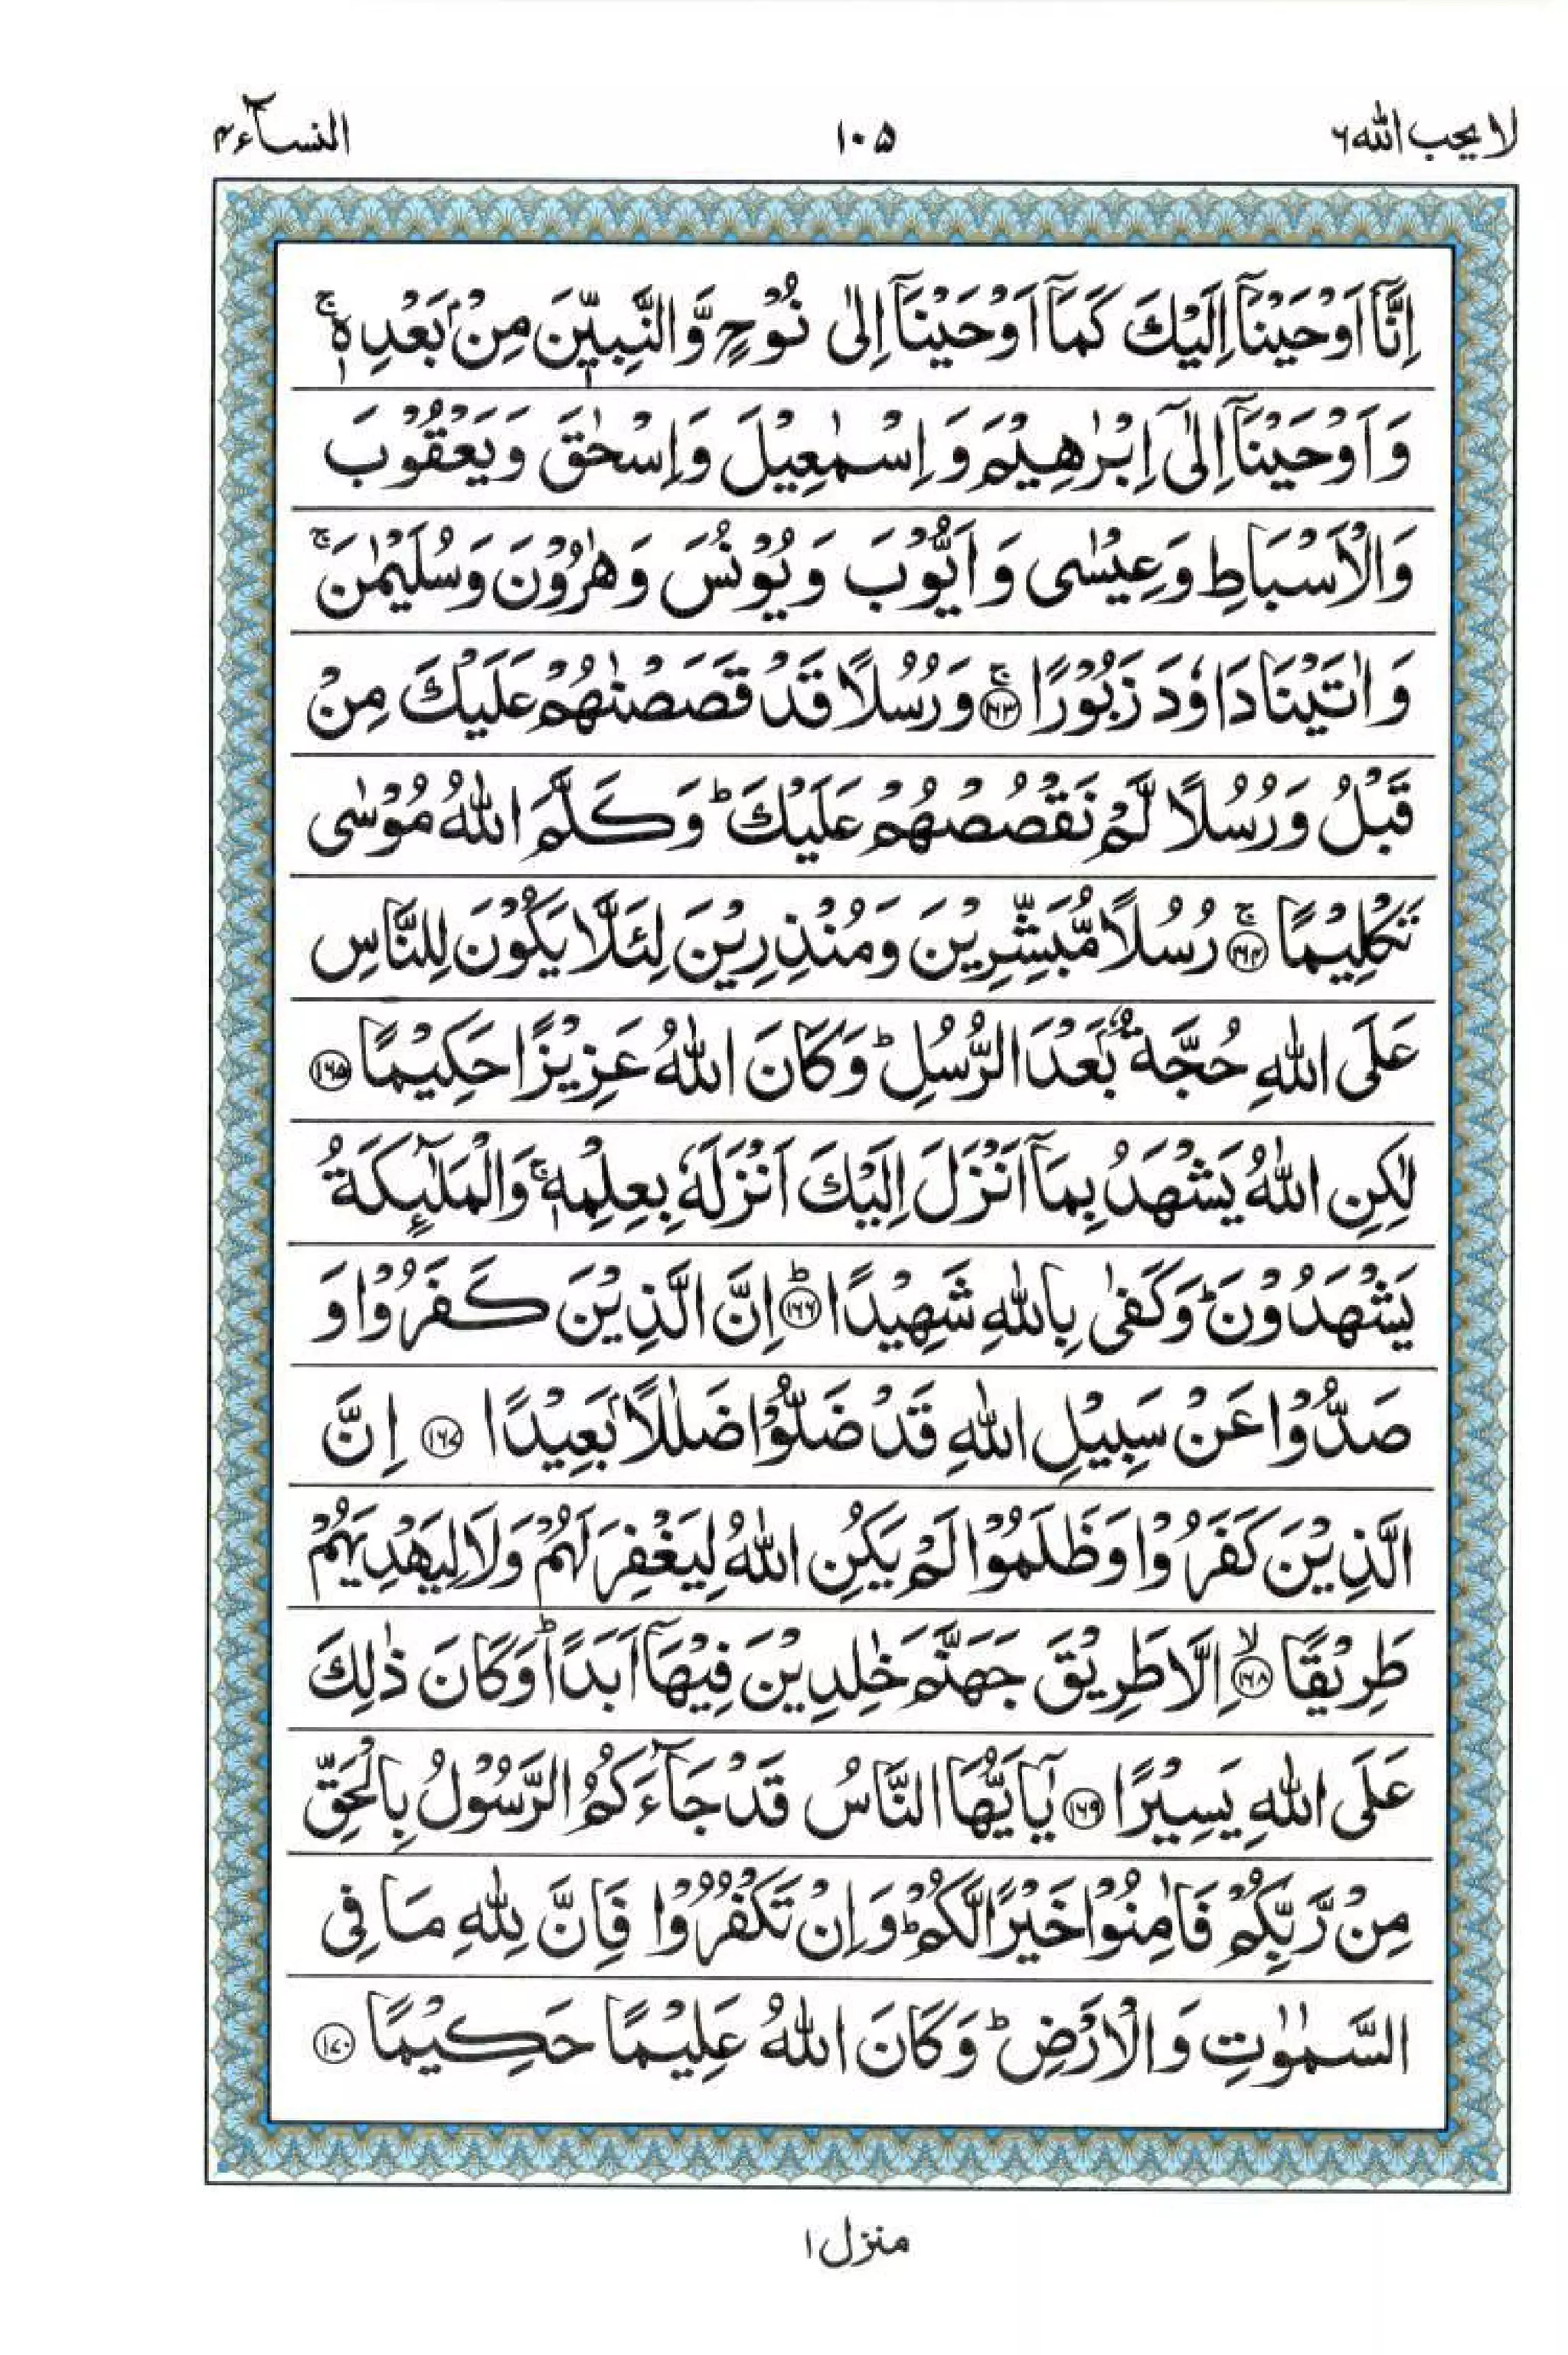 لا يحب الله ۶
۱۰۵
النسآء ۴
اِنَّاۤ اَوْحَیْنَاۤ اِلَیْكَ كَمَاۤ اَوْحَیْنَاۤ اِلٰى نُوْحٍ وَّالنَّبِیّٖنَ مِنْۢ بَعْدِهٖ ۚ
وَاَوْحَیْنَاۤ اِلٰۤى اِبْرٰهِیْمَ وَاِسْمٰعِیْلَ وَاِسْحٰقَ وَیَعْقُوْبَ
وَالْاَسْبَاطِ وَعِیْسٰى وَاَیُّوْبَ وَیُوْنُسَ وَهٰرُوْنَ وَسُلَیْمٰنَ ۚ
وَاٰتَیْنَا دَاوٗدَ زَبُوْرًا ۚ ﴿۱۶۳﴾ وَرُسُلًا قَدْ قَصَصْنٰهُمْ عَلَیْكَ مِنْ
قَبْلُ وَرُسُلًا لَّمْ نَقْصُصْهُمْ عَلَیْكَ ؕ وَكَلَّمَ اللّٰهُ مُوْسٰى
تَكْلِیْمًا ۚ ﴿۱۶۴﴾ رُسُلًا مُّبَشِّرِیْنَ وَمُنْذِرِیْنَ لِئَلَّا یَكُوْنَ لِلنَّاسِ
عَلَى اللّٰهِ حُجَّةٌۢ بَعْدَ الرُّسُلِ ؕ وَكَانَ اللّٰهُ عَزِیْزًا حَكِیْمًا ﴿۱۶۵﴾
لٰكِنِ اللّٰهُ یَشْهَدُ بِمَاۤ اَنْزَلَ اِلَیْكَ اَنْزَلَهٗ بِعِلْمِهٖ ۚ وَالْمَلٰٓىِٕكَةُ
یَشْهَدُوْنَ ؕ وَكَفٰى بِاللّٰهِ شَهِیْدًا ؕ ﴿۱۶۶﴾ اِنَّ الَّذِیْنَ كَفَرُوْا وَ
صَدُّوْا عَنْ سَبِیْلِ اللّٰهِ قَدْ ضَلُّوْا ضَلٰلًۢا بَعِیْدًا ﴿۱۶۷﴾ اِنَّ
الَّذِیْنَ كَفَرُوْا وَظَلَمُوْا لَمْ یَكُنِ اللّٰهُ لِیَغْفِرَ لَهُمْ وَلَا لِیَهْدِیَهُمْ
طَرِیْقًا ۙ ﴿۱۶۸﴾ اِلَّا طَرِیْقَ جَهَنَّمَ خٰلِدِیْنَ فِیْهَاۤ اَبَدًا ؕ وَكَانَ ذٰلِكَ
عَلَى اللّٰهِ یَسِیْرًا ﴿۱۶۹﴾ یٰۤاَیُّهَا النَّاسُ قَدْ جَآءَكُمُ الرَّسُوْلُ بِالْحَقِّ
مِنْ رَّبِّكُمْ فَاٰمِنُوْا خَیْرًا لَّكُمْ ؕ وَاِنْ تَكْفُرُوْا فَاِنَّ لِلّٰهِ مَا فِی
السَّمٰوٰتِ وَالْاَرْضِ ؕ وَكَانَ اللّٰهُ عَلِیْمًا حَكِیْمًا ﴿۱۷۰﴾
منزل ۱